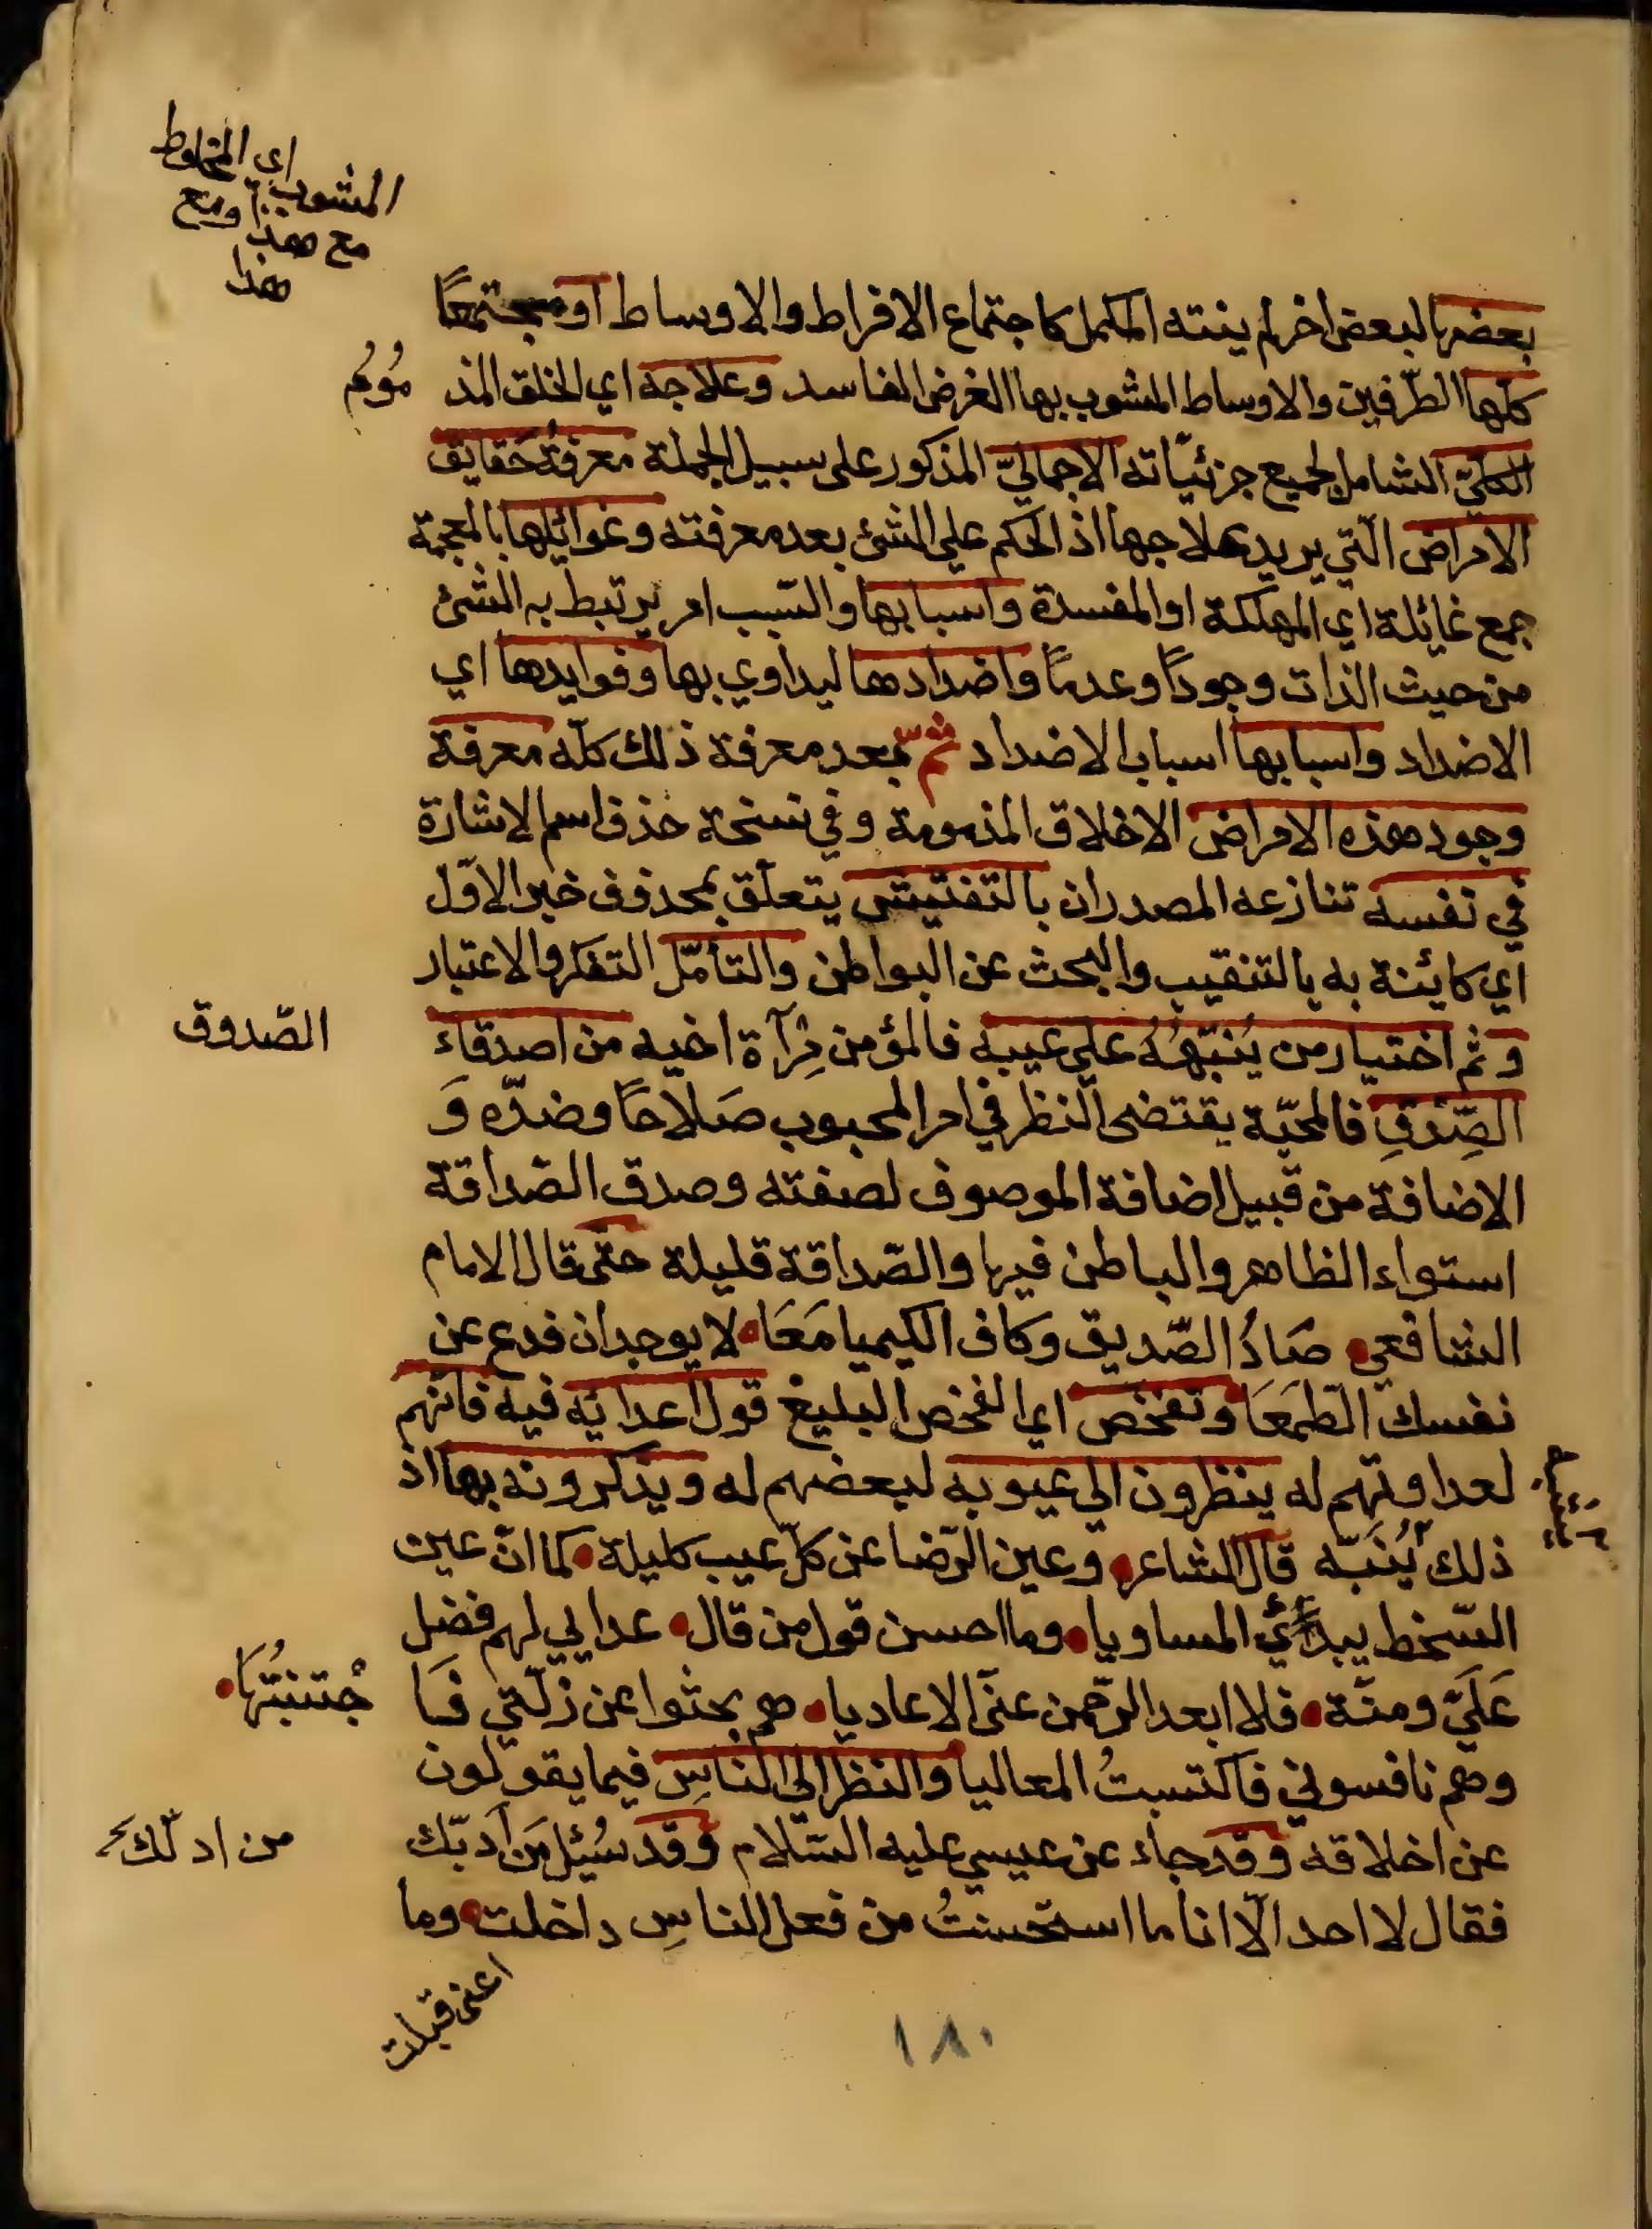 المشوب اي المخلوط
مع هذا ومع
هذا
بعضها لبعض اخر لم ينته المكمل كاجتماع الافراط والاوساط او مجتمعًا
كلها الطّرفين والاوساط المشوب بها الغرض الفاسد وعلاجه اي الخلق المذ مُومُ
الكليّ الشامل لجميع جزئيّاته الاجماليّ المذكور على سبيل الجملة معرفةُ حَقايق
الامراض الّتي يريد علاجها اذ الحكم علي الشئ بعد معرفته وغوائلها بالمعجمة
جمع غائلة اي المهلكة او المفسدة واسبابها والسّبب امر يرتبط به الشئ
من حيث الذات وجودًا وعدمًا واضدادها ليداوي بها وفوايدها اي
الاضداد واسبابها اسباب الاضداد ثمّ بعد معرفة ذلك كلّه معرفة
وجود هذه الامراض الاخلاق المذمومة وفي نسخة حذف اسم الاشارة
في نفسه تنازعه المصدران بالتفتيش يتعلّق بمحذوف خبر الاوّل
اي كائنة به بالتنقيب والبحث عن البواطن والتأمّل التفكر والاعتبار
و ثم اختيار من يُنبّهُهُ علي عيبه فالمؤمن مِرآة اخيه من اصدقاء
الصّدوق
الصِّدقِ فالمحبّة يقتضى النظر في امر المحبوب صَلاحًا وضدّه وَ
الاضافة من قبيل اضافة الموصوف لصفته وصدق الصّداقة
استواء الظاهر والباطن فيها والصّداقة قليلة حتّى قال الامام
الشافعي صَادُ الصّديق وكاف الكيميا مَعَا لا يوجدان فدع عن
نفسك الطّمَعَا وتفحّص اي الفحص البليغ قول اعدائه فيه فانّهم
لعداوتهم له ينظرون الي عيوبه لبعضهم له ويذكرونه بها اذ
ذلك يُنَبّه قال الشاعر وعين الرّضا عن كلّ عيب كليلة كما انّ عين
السّخط يبدئي المساويا وما احسن قول من قال عدايي لهم فضل
عَلَيّ ومنّة فلا ابعد الرّحمن عنّى الاعاديا هم بحثوا عن زلّتي فَا جْتنبتُهَا
وهم نافسوني فاكتسبتُ المعاليا والنظر الي الناسِ فيما يقولون
عن اخلاقه وقد جاء عن عيسي عليه السّلام وقد سُئِل مَن اَدّبَك
من ادلّك
فقال لا احد الّا انا ما استحسنتُ من فعل الناسِ داخلت وما
اعنى قبلت
١٨٠